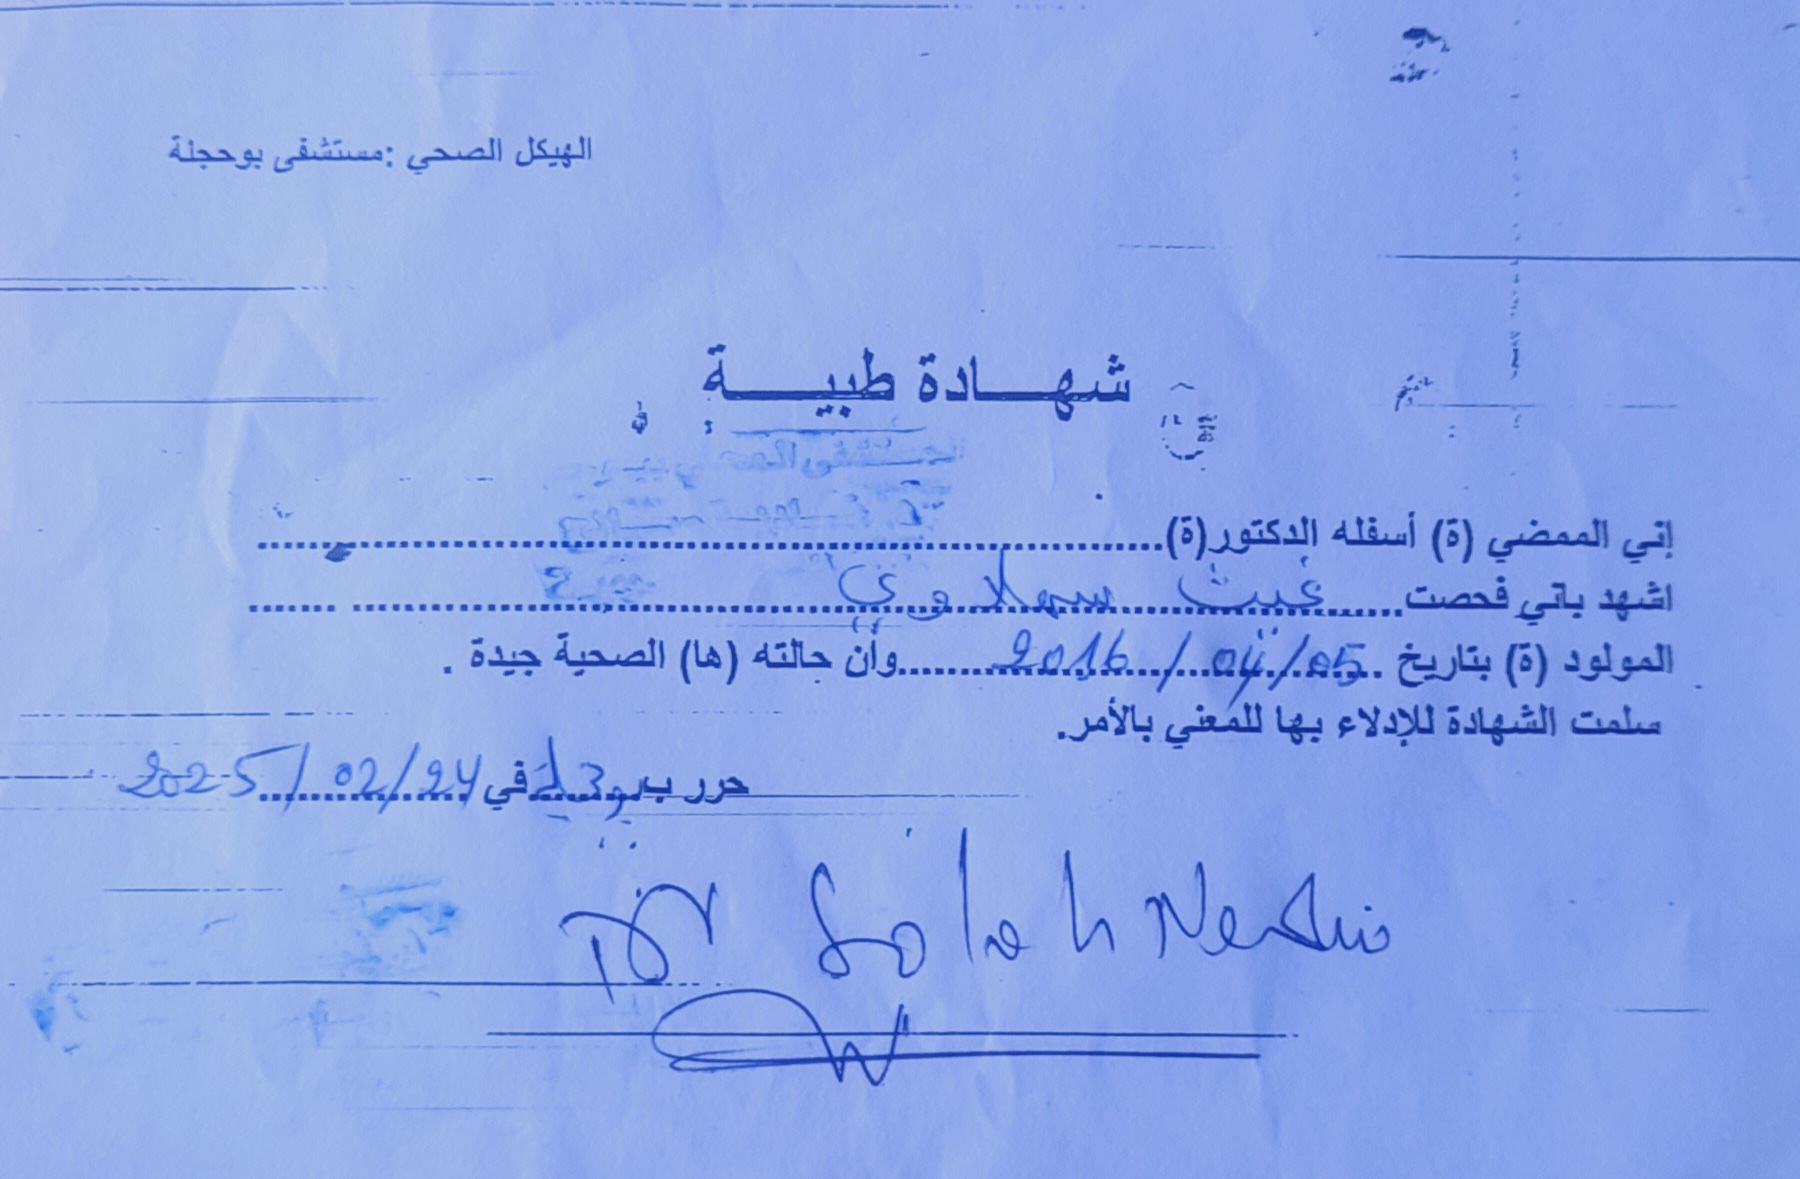 الهيكل الصحي :مستشفى بوحجلة
شهـــادة طبيـــة
إني الممضي (ة) أسفله الدكتور(ة)..........
اشهد باني فحصت.....غيث سهلاوي..........
المولود (ة) بتاريخ ..05/04/2016..وأن حالته (ها) الصحية جيدة .
سلمت الشهادة للإدلاء بها للمعني بالأمر.
حرر ب في 24/02/2025
Dr Salah